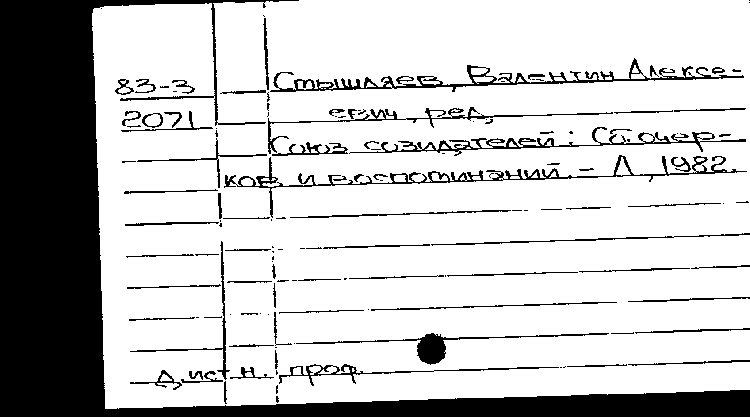 83-3 Стышляев, Валентин Алексе-
2071 евич, ред,
Союз созидателей: Сб. очер-
ков и воспоминаний. - Л, 1982.
д. ист. н., проф.